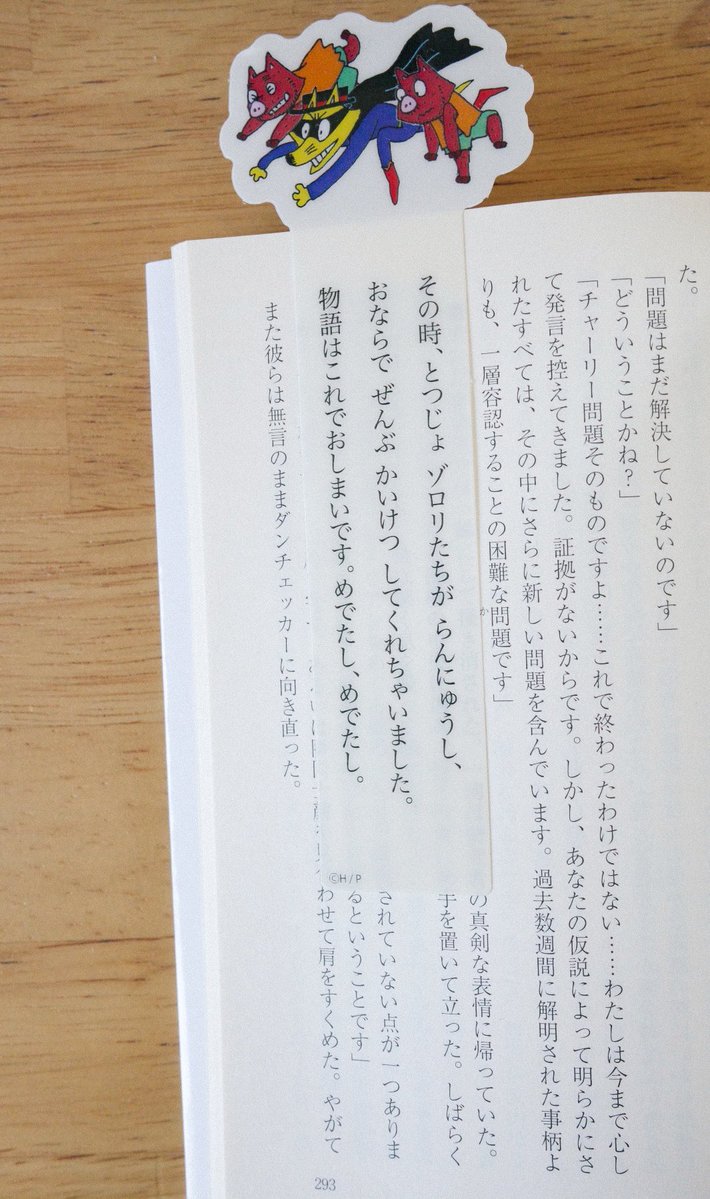 た。
「問題はまだ解決していないのです」
「どういうことかね?」
「チャーリー問題そのものですよ……これで終わったわけではない……わたしは今まで心し
て発言を控えてきました。証拠がないからです。しかし、あなたの仮説によって明らかにさ
れたすべては、その中にさらに新しい問題を含んでいます。過去数週間に解明された事柄よ
りも、一層容認することの困難な問題です」
か
の真剣な表情に帰っていた。
手を置いて立った。しばらく
されていない点が一つありま
るということです」
わせて肩をすくめた。やがて
また彼らは無言のままダンチェッカーに向き直った。
293
その時、とつじょ ゾロリたちが らんにゅうし、
おならで ぜんぶ かいけつ してくれちゃいました。
物語はこれでおしまいです。めでたし、めでたし。
©H/P